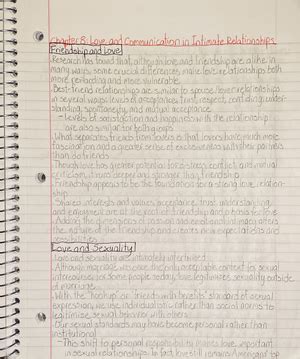 Chapter 8: Love and Communication in Intimate Relationships
Friendship and Love
Research has found that, although love and friendship are alike in
many ways, some crucial differences make love relationships both
more rewarding and more vulnerable.
Best-friend relationships are similar to spouse/lover relationships
in several ways: levels of acceptance, trust, respect, confiding, under-
standing, spontaneity, and mutual acceptance.
- Levels of satisfaction and happiness with the relationship
are also similar for both groups
What separates friends from lovers is that lovers have much more
fascination and a greater sense of exclusiveness with their partners
than do friends
Though love has greater potential for distress, conflict, and mutual
criticism, it runs deeper and stronger than friendship
Friendship appears to be the foundation for a strong love relation-
ship.
Shared interests and values, acceptance, trust, understanding,
and enjoyment are at the root of friendship and a basis for love
Adding the dimensions of and emotional alters
the nature of the friendship and creates new expectations and
possibilities
Love and Sexuality
Love and sexuality are intimately intertwined
Although marriage was once the only acceptable context for sexual
intercourse, for some people today, love legitimizes sexuality outside
of marriage.
With the "hookup" or "friends with benefits" standard of sexual
expression, we use individualistic rather than social norms to
legitimize sexual behavior with others
Our sexual standards may have become personal rather than
institutional
- This shift to personal responsibility makes love important
in sexual relationships. In fact, love